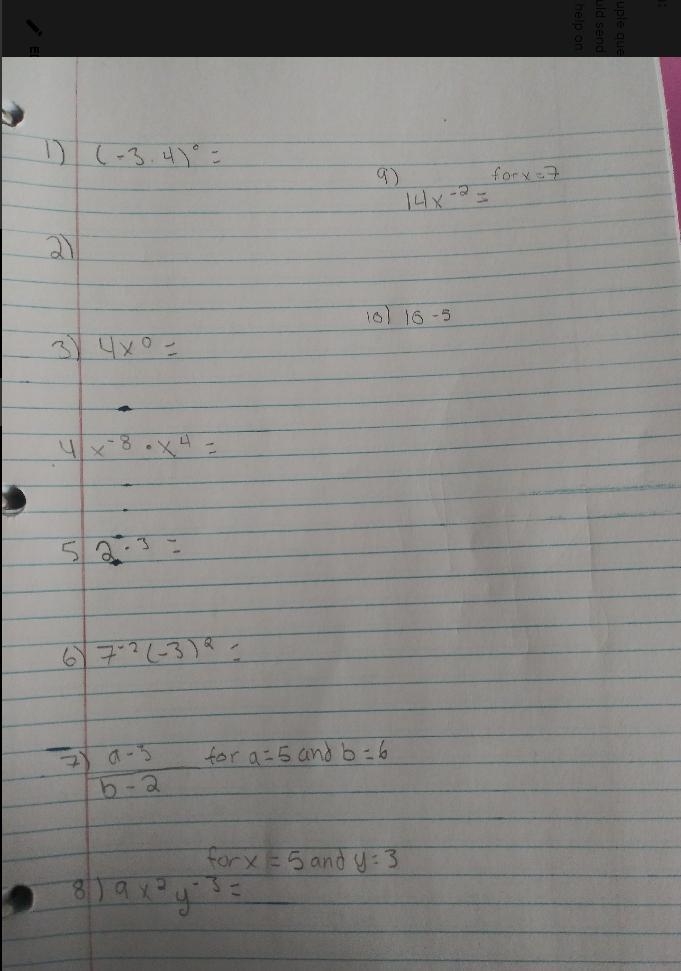 uple que
uld send
help on
1) (-3.4)° =
2)
3) 4x⁰ =
4 x⁻⁸ • x⁴ =
5 2⁻³ =
6) 7⁻² (-3)² =
7) a-3 for a=5 and b=6
b-2
for x = 5 and y=3
8) 9x²y⁻³ =
9) for x=7
14x⁻² =
10) 10 -5